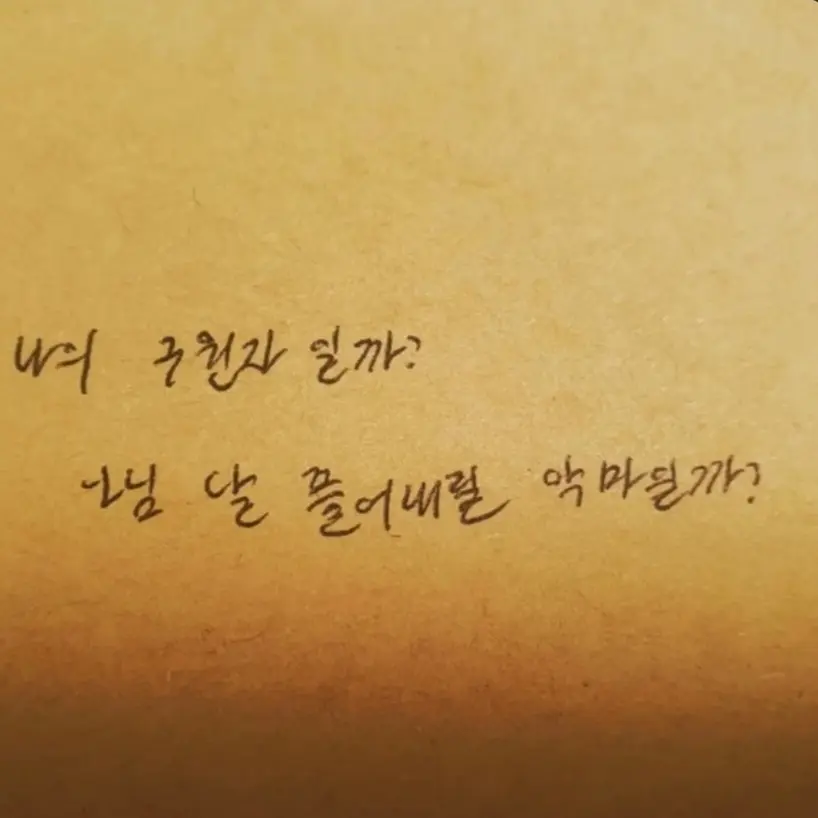 나의 구원자 일까?
그냥 날 끌어내릴 악마일까?